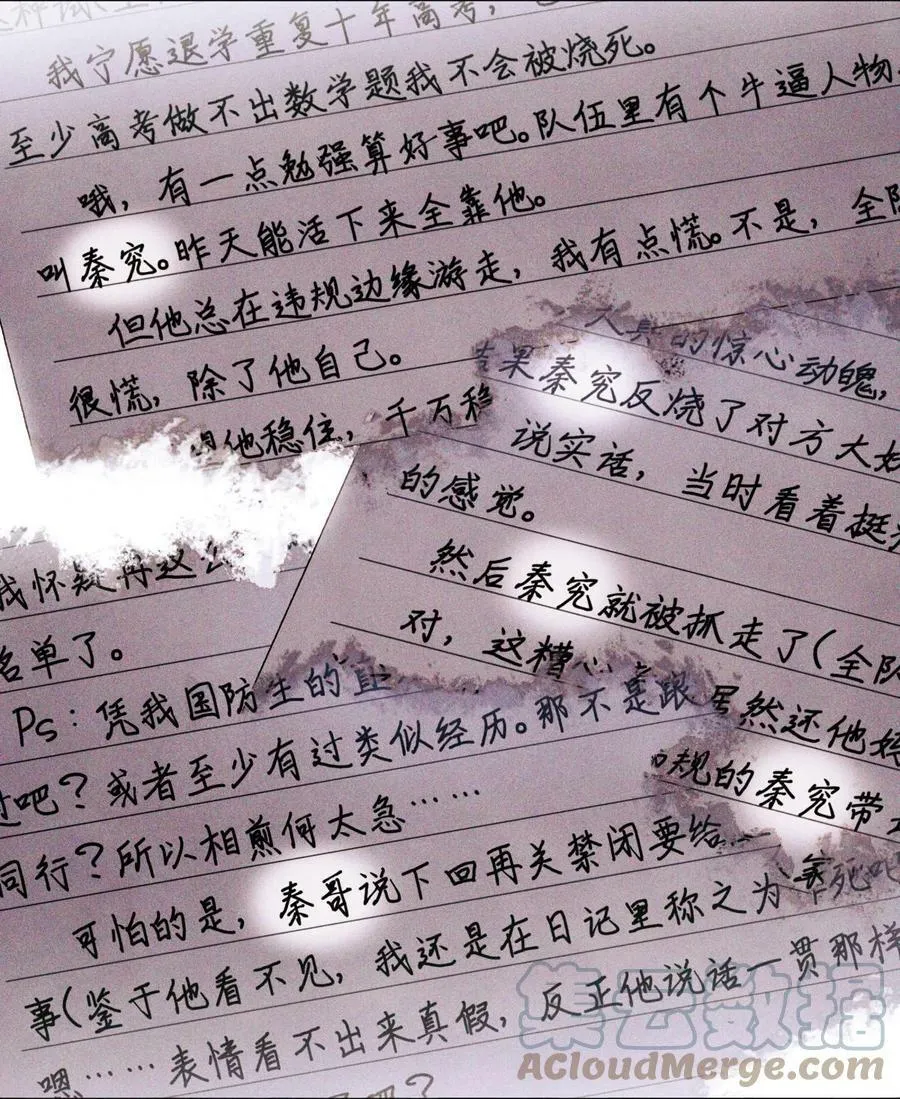 我宁愿退学重复十年高考，
至少高考做不出数学题我不会被烧死。
哦，有一点勉强算好事吧。队伍里有个牛逼人物，
叫秦究。昨天能活下来全靠他。
但他总在违规边缘游走，我有点慌。不是，全队
很慌，除了他自己。
他稳住，千万稳
的惊心动魄，
结果秦究反烧了对方大
说实话，当时看着挺
的感觉。
然后秦究就被抓走了（全队
对，这糟心
虽然还他
规的秦究带
我怀疑再这么
名单了。
Ps：凭我国防生的直
过吧？或者至少有过类似经历。那不是跟
同行？所以相煎何太急……
可怕的是，秦哥说下回再关禁闭要给
事（鉴于他看不见，我还是在日记里称之为
……表情看不出来真假，反正他说话一贯那样
嗯……
吧？
集云数据
ACloudMerge.com